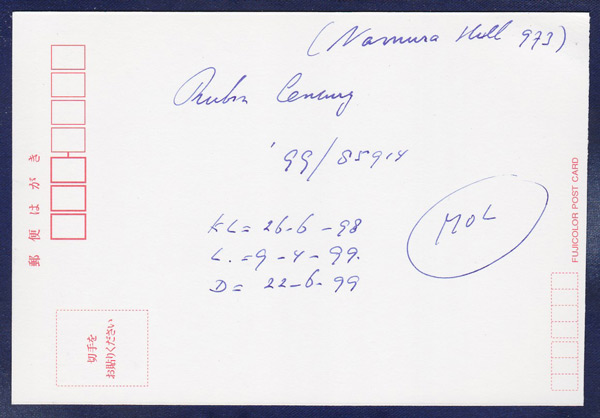 (Namura Hull 973)
Rubin
'99/85914
KL = 26-6-98
L. = 9-4-99.
D = 22-6-99
MOL
郵便はがき
切手を
お貼りください
FUJICOLOR POST CARD